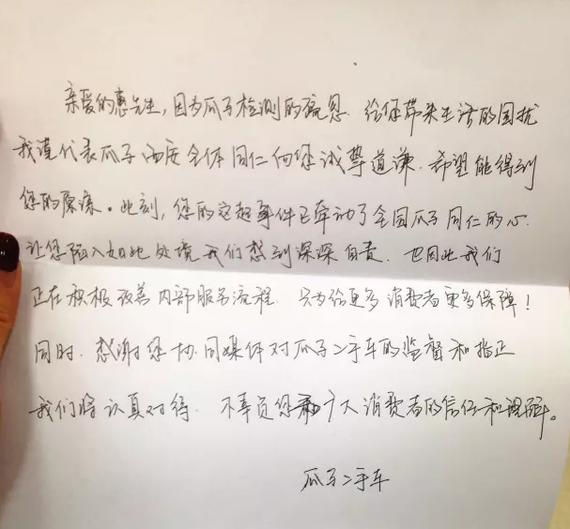 亲爱的惠先生，因为瓜子检测的疏忽 给您带来生活的困扰
我谨代表瓜子西安全体同仁向您诚挚道谦.希望能得到
您的原谅。此刻，您的这起事件已牵动了全国瓜子同仁的心.
让您陷入如此处境我们感到深深自责.也因此我们
正在积极改善内部服务流程.只为给更多消费者更多保障！
同时.感谢您协同媒体对瓜子二手车的监督和指正
我们将认真对待.不辜负您和广大消费者的信任和理解。
瓜子二手车